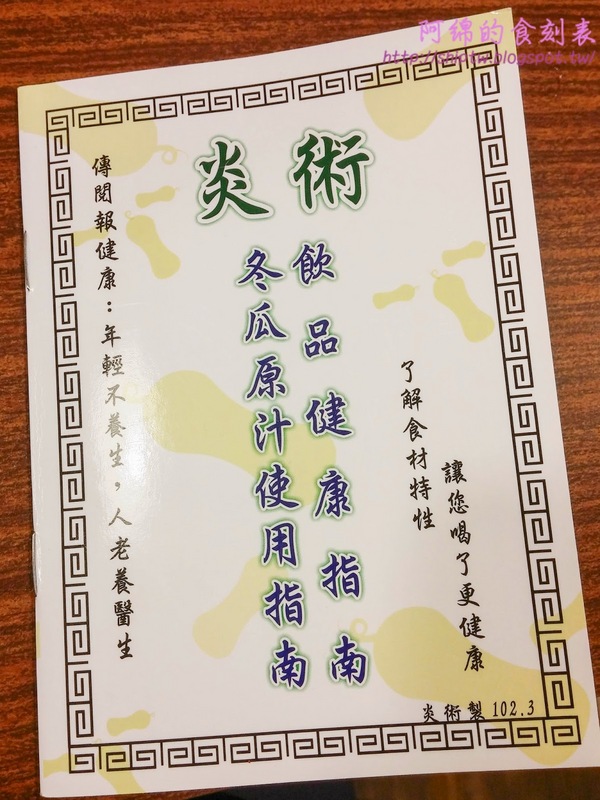 阿綿的食刻表
http://shiptw.blogspot.tw/
炎術
飲品健康指南
冬瓜原汁使用指南
了解食材特性
讓您喝了更健康
傳閱報健康：年輕不養生，人老養醫生
炎術製102.3